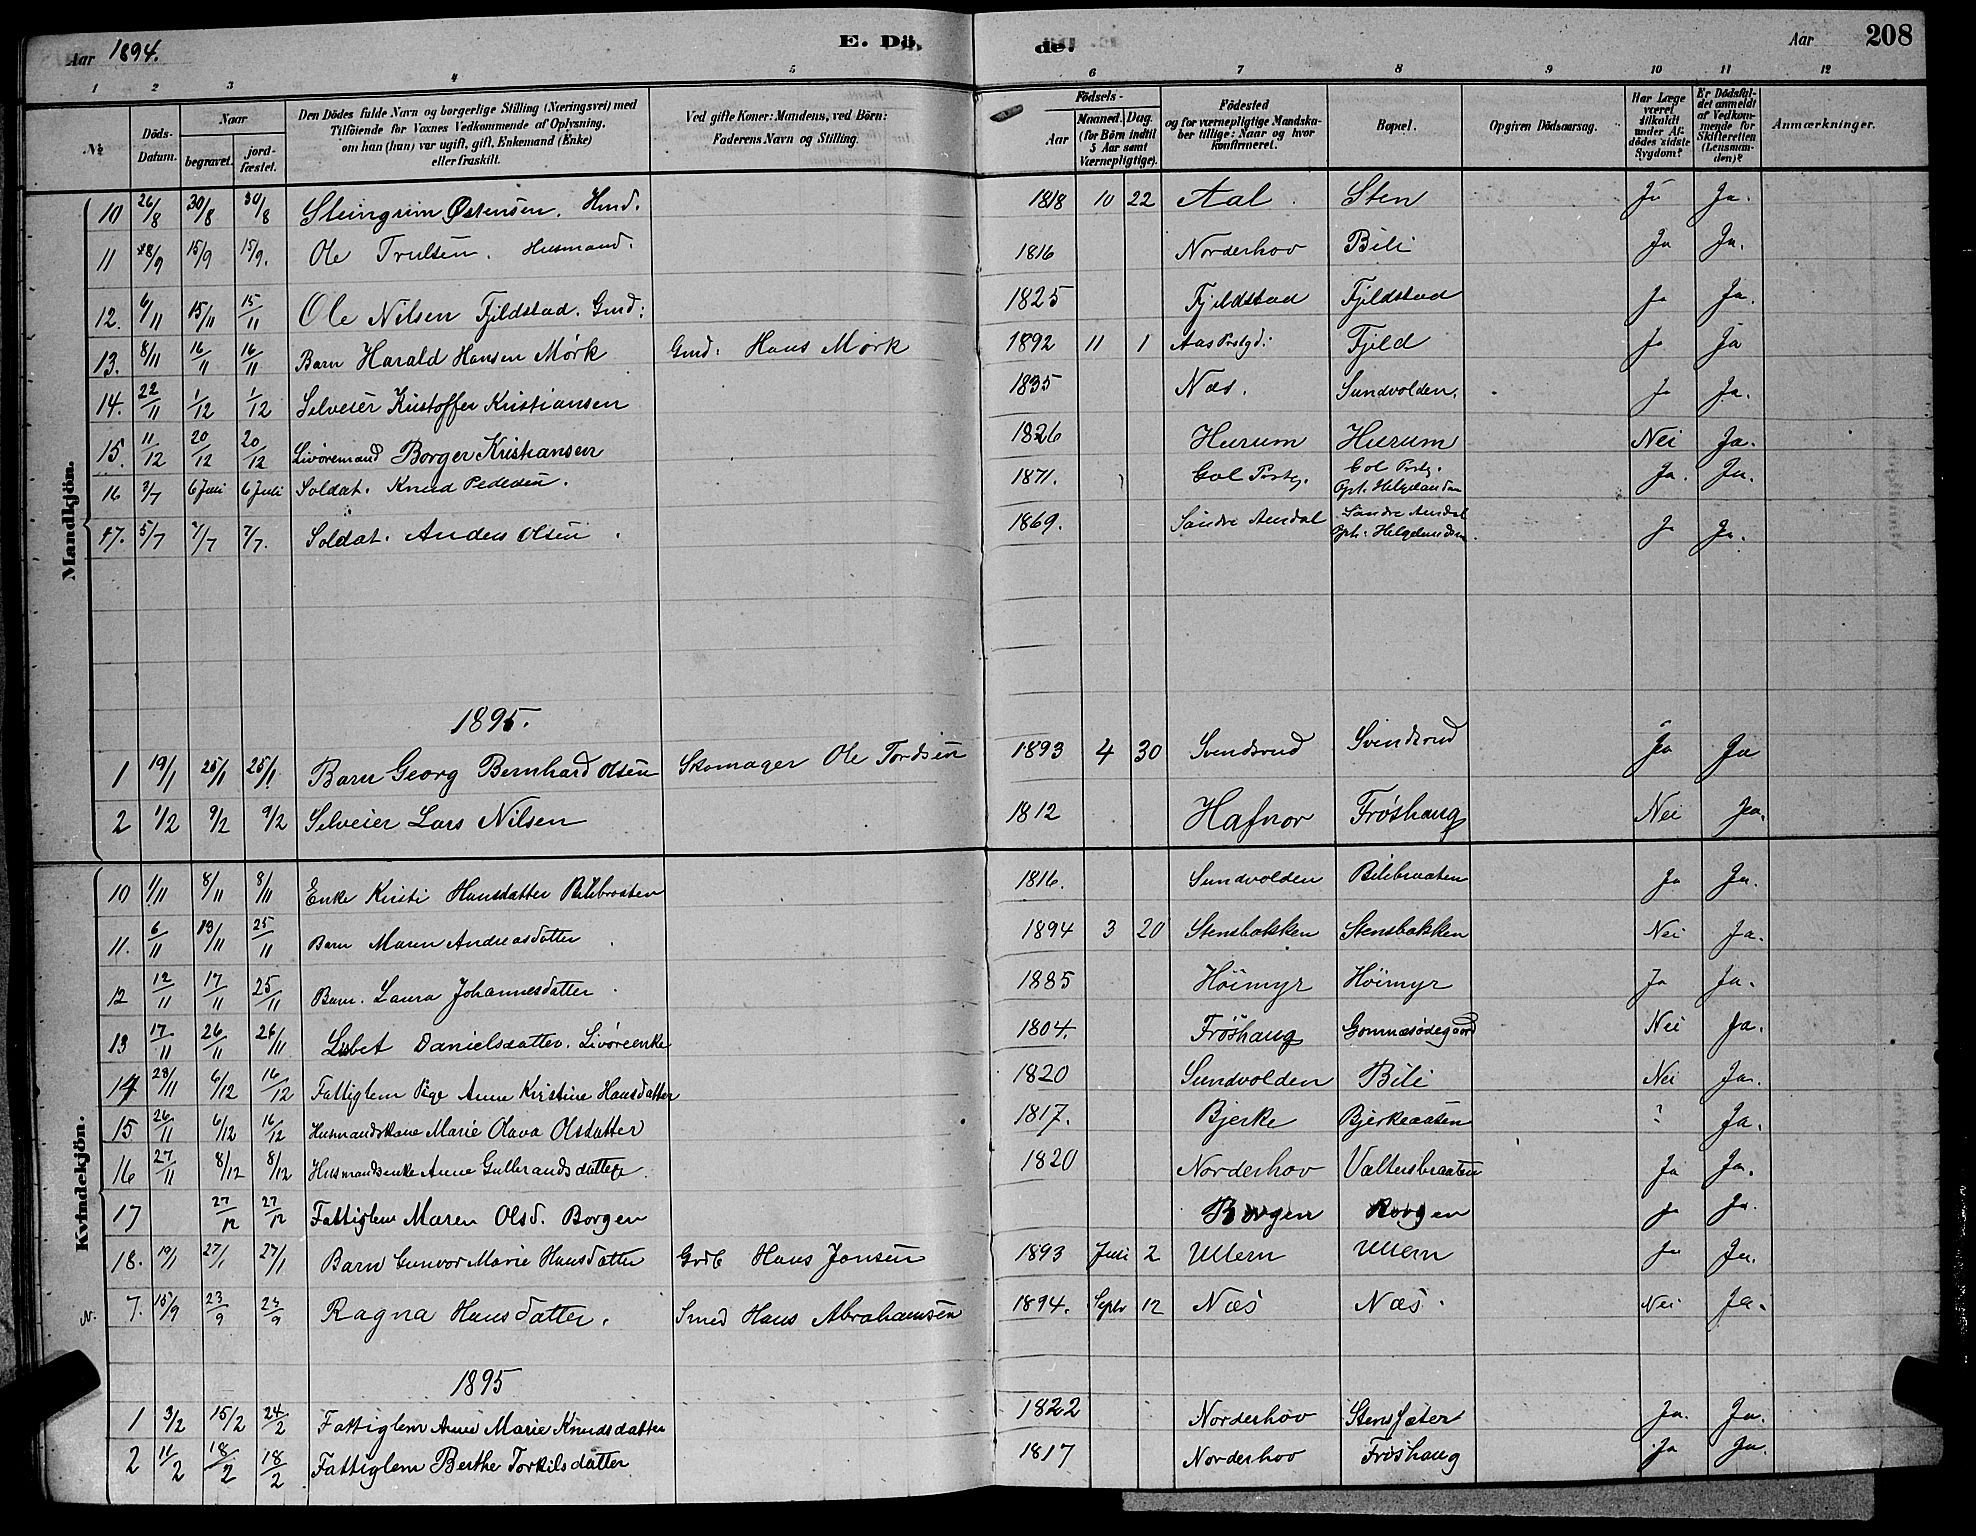 Aar 1894. E. Dö- de. Aar 208
1 2 3 4 5 6 7 8 9 10 11 12
№ Döds-Datum. Naar begravet. jordfæstet. Den Dödes fulde Navn og borgerlige Stilling (Næringsvei) med Tilföiende for Voxnes Vedkommende af Oplysning, om han (hun) var ugift, gift, Enkemand (Enke) eller fraskilt. Ved gifte Koner: Mandens, ved Börn: Faderens Navn og Stilling. Födsels- Aar Maaned. Dag. (for Börn indtil 5 Aar samt Værnepligtige). Födested og for værnepligtige Mandskaber tillige: Naar og hvor konfirmeret. Bopæl. Opgiven Dödsaarsag. Har Læge været tilkaldt under Afdödes sidste Sygdom? Er Dödsfaldet anmeldt af Vedkommende for Skifteretten (Lensmanden)? Anmærkninger.
Mandkjön.
10 26/8 30/8 30/8 Steingrim Østensen. Hmd. 1818 10 22 Aal. Sten Ja Ja.
11 8/9 15/9 15/9. Ole Trulsen. Husmand. 1816 Norderhov Bili Ja Ja.
12. 6/11 15/11 15/11 Ole Nilsen Fjeldstad. Gmd: 1825 Fjeldstad Fjeldstad Ja Ja.
13. 8/11 16/11 16/11 Barn Harald Hansen Mørk Gmd: Hans Mørk 1892 11 1 Aas Prstgd: Fjeld Ja Ja
14. 22/11 1/12 1/12 Selveier Kristoffer Kristiansen 1835 Næs. Sundvolden. Ja Ja.
15. 11/12 20/12 20/12 Livøremand Borger Kristiansen 1826 Hurum Hurum Nei Ja.
16 3/7 6 Juli 6 Juli Soldat. Knud Pedersen. 1871. Gol Prstg. Gol Prstg. Oph. Helgelandsm Ja. Ja.
17. 5/7 7/7 7/7. Soldat. Anders Olsen. 1869. Søndre Aurdal Søndre Aurdal Oph. Helgelandsm. Ja Ja.
1895.
1 19/1 25/1 25/1 Barn Georg Bernhard Olsen Skomager Ole Tordsen 1893 4 30 Svendsrud Svendsrud Ja Ja
2 1/2 9/2 9/2 Selveier Lars Nilsen 1812 Hafnor Frøshaug Nei Ja.
Kvindekjön.
10 1/11 8/11 8/11 Enke Kirsti Hansdatter Bilibraaten 1816. Sundvolden Bilibraaten Ja Ja.
11. 6/11 19/11 25/11 Barn Maren Andreasdatter 1894 3 20 Stensbakken Stensbakken Nei Ja.
12 12/11 17/11 25/11 Barn. Laura Johannesdatter. 1885 Høimyr Høimyr Ja Ja.
13 17/11 26/11 26/11 Lisbet Danielsdatter. Livøreenke 1804. Frøshaug Gomnæsødegaard Nei Ja.
14 28/11 6/12 16/12 Fattiglem Pige Anne Kirstine Hansdatter 1820 Sundvolden Bili Nei Ja.
15 26/11 6/12 16/12 Husmandskone Marie Olava Olsdatter 1817. Bjerke Bjerkeaasen ? Ja.
16 27/11 8/12 8/12 Husmandsenke Anne Gulbrandsdatter. 1820 Norderhov Valtersbraaten Ja Ja.
17 27/12 27/12 Fattiglem Maren Olsd. Borgen Borgen Borgen Ja Ja.
18. 19/1 27/1 27/1 Barn Gunvor Marie Hansdatter Grdb Hans Jonsen 1893 Juli 2 Ullern Ullern Ja Ja.
N. 7. 15/9 23/9 23/9 Ragna Hansdatter. Smed Hans Abrahamsen 1894. Septr 12 Næs Næs. Nei Ja.
1895
1 3/2 15/2 24/2 Fattiglem Anne Marie Knudsdatter 1822 Norderhov Stensfæter Ja. Ja.
2 11/2 18/2 18/2 Fattiglem Berthe Torkilsdatter 1817 Norderhov Frøshaug Ja Ja.